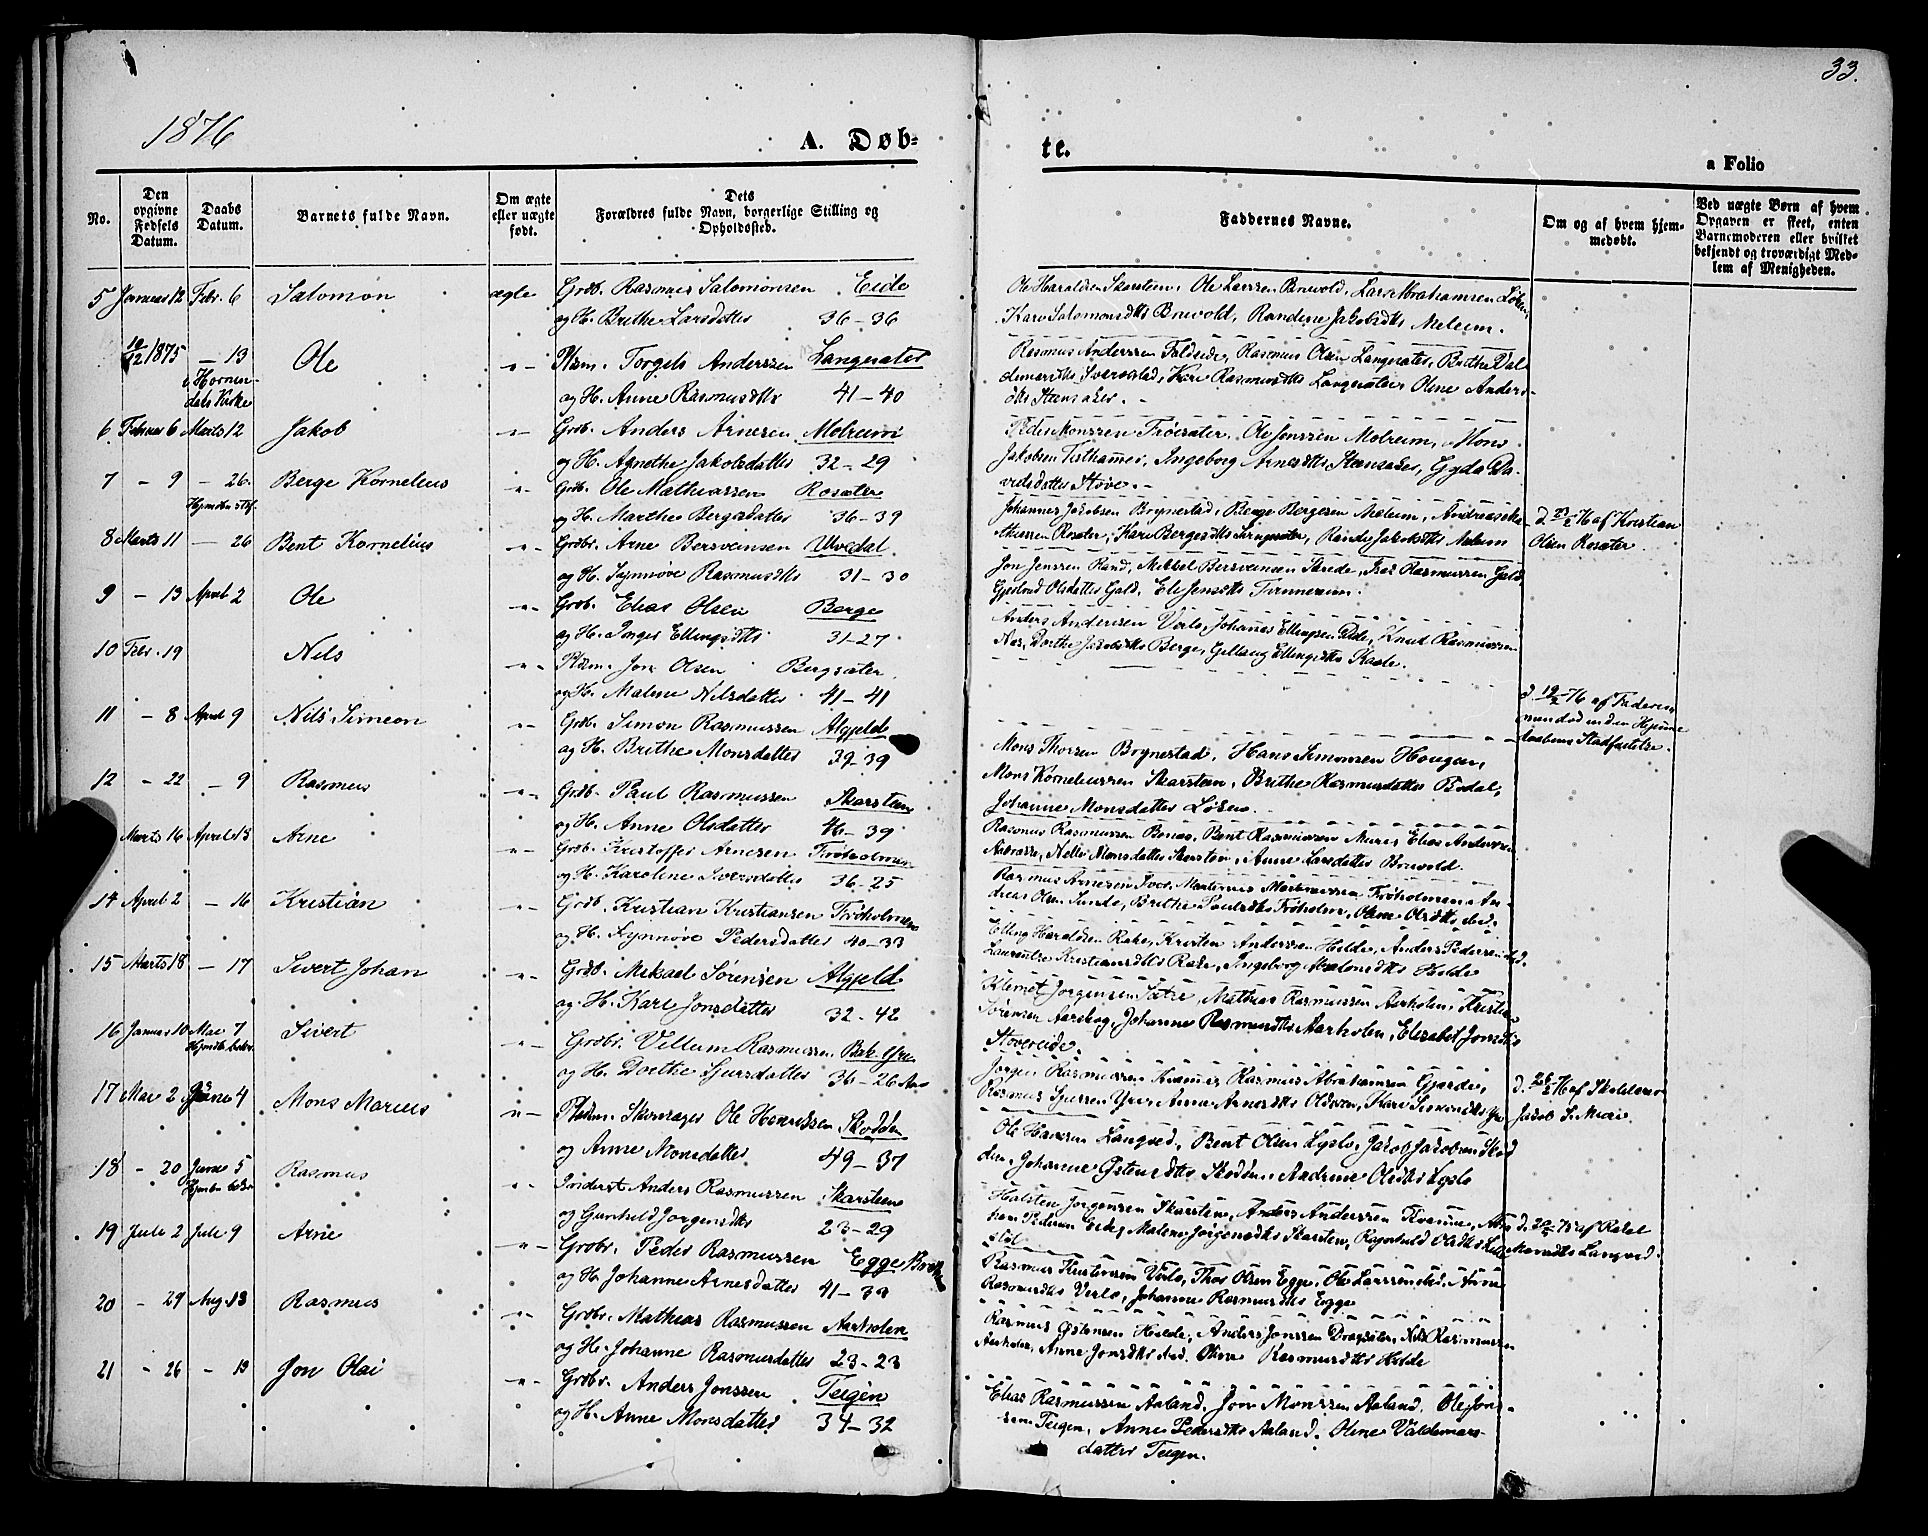 33.
1876
A. Døb-
te.
a Folio
No.
Den opgivne Fødsels Datum.
Daabs Datum.
Barnets fulde Navn.
Om ægte eller uægte født.
Dets Forældres fulde Navn, borgerlige Stilling og Opholdssted.
Faddernes Navne.
Om og af hvem hjem-
medøbt.
Ved uægte Børn af hvem
Opgaven er skeet, enten
Barnemoderen eller hvilket
bekjendt og troværdigt Med-
lem af Menigheden.
5 Januar 12 Febr. 6 Salomon ægte Grdb. Rasmus Salomonsen Eide
og H. Brithe Larsdatter 36-36
Ole Haraldsen Skarstein, Ole Larssen Bruvold, Lars Abrahamsen Løken
Kari Salomonsdtr Bruvold, Randine Jakobsdtr Meleim.
1875 - 13 Ole -"- Plsm. Torgels Anderssen Langesæter
i Hornin-
dals Kirke
og H. Anne Rasmusdtr 41-40
Rasmus Anderssen Faldeide, Rasmus Olsen Langesæter, Brithe Val-
demarsdtr Sværestad, Kari Rasmusdtr Langesæter, Oline Anders-
dtr Stensaker.
6 Februar 6 Marts 12 Jakob -"- Grdb. Anders Arnesen Melreim
og H. Agnethe Jakobsdatter 32-29
Peder Monssen Frøisæter, Ole Jonssen Melreim, Mons
Jakobsen Tisthammer, Ingeborg Arnesdtr Stensaker, Gyda Da-
vidsdatter Stove.
7 - 9 - 26. Berge Kornelius -"- Grdb. Ole Mathiassen Rosæter
og H. Marthe Bergesdatter 36-39
Johannes Jakobsen Brynestad, Berge Bergesen Meleim, Andreas Ma-
thissen Rosæter, Kari Bergesdtr, Randi Jakobsdtr Meleim
d. 27/2 76 af Kristian
Olsen Rosæter.
8 Marts 11 - 26 Bent Kornelius -"- Grdbr. Arne Bersveinsen Ulvedal.
og H. Synnøve Rasmusdtr 31-30
Jon Jenssen Rand, Mikkel Bersveinsen Skrede, Isak Rasmussen Gald
Gjertrud Olsdatter Gald, Eli Jensdtr Tennereim.
9 - 13 April 2 Ole -"- Grdb. Elias Olsen Berge
og H. Inger Ellingsdtr 31-27
Anders Andersen Verlo, Johannes Ellingsen Eide, Knut Rasmussen
Aas, Dorthe Jakobsdtr Berge, Gellaug Ellingsdtr Raste.
10 Febr. 19 Nils -"- Plsm. Jon Olsen Bergsæter
og H. Malene Nilsdatter 41-41
d. 19/2 76 af Faderen
men død inden Hjemme
daabens Stadfæstelse.
11 - 8 April 9 Nils Simeon -"- Grdb. Simon Rasmussen Algjeld
og H. Brithe Monsdatter 39-39
Mons Thorsen Brynestad, Hans Simonsen Hougen,
Mons Korneliussen Skarstein, Brithe Rasmusdatter Bødal,
Johanne Monsdatter Løken.
12 - 22 - 9 Rasmus -"- Grdb. Paul Rasmussen Skarstein
og H. Anne Olsdatter 46-39
Rasmus Rasmussen Bones, Bent Rasmussen Muri, Elias Anderssen
Nelle Monsdatter Skarstein, Anne Larsdatter Bruvold.
Marts 16 April 13 Arne -"- Grdb. Kristoffer Arnesen Frøholmen
og H. Karoline Iversdatter 36-25
Rasmus Arnesen, Frøholmen, An-
dreas Olsen Sunde, Brithe Paulsdtr Frøholm, Oline Olsdtr ibid.
14 April 2 - 16 Kristian -"- Grdb. Kristian Kristiansen Frøholmen
og H. Synnøve Pedersdatter 40-33
Elling Haraldsen Rake, Kristen Anderssen Helde, Anders Pedersen ibid.
Laurentze Kristiansdtr Rake, Ingeborg Helde
15 Marts 18 - 17 Sivert Johan -"- Grdb. Mikael Sørensen Algjeld
og H. Kari Jonsdatter 32-42
Klemet Jørgensen Sætre, Mathias Rasmussen Aarholen, Kristian
Sørensen Aarskog, Johanne Rasmusdtr Aarholen, Elisabet Jonsdtr
Støvereide.
16 Januar 10 Mai 7 Sivert -"- Grdbr. Villum Rasmussen Bak-Yri
og H. Dorthe Sjursdatter 36-26 Aar
Jørgen Rasmussen Kvamme, Rasmus Abrahamsen Gjerde,
Rasmus Sjursen Yri, Anne Arnesdtr Oldøren, Kari Simonsdtr Yri
Jakob S. Muri.
17 Mai 2 Juni 4 Mons Marius -"- Plsdm. Skomager Ole Henrikssen Skodden
og Anne Monsdatter 49-37
Ole Hanssen Langved, Bent Olsen Lyslo, Jakob Jakobsen Skod
den, Johanne Østensdtr Skodden, Andrine Olsdtr Lyslo
18 - 20 Juni 5 Rasmus -"- Inderst Anders Rasmussen Skarstein
og Gunhild Jørgensdtr 23-29
Halsten Jørgensen Skarstein, Anders Anderssen Kvamme, Abra
ham Pedersen Eide, Malene Jørgensdtr Skarsten, Ragnhild Olsdtr
af Rakel
Monsdtr Langved.
19 Juli 2 Juli 9 Arne -"- Grdbr. Peder Rasmussen Egge
og H. Johanne Arnesdatter 41-39
Rasmus Kristensen Verlo, Thor Olsen Egge, Ole Larssen ibid. Anne
Rasmusdtr Verlo, Johanne Rasmusdtr Egge
20 - 29 Aug 13 Rasmus -"- Grdbr. Mathias Rasmussen Aarholen
og H. Johanne Rasmusdatter 23-23
Rasmus Østensen Helde, Anders Jonssen Dragsæter, Nils Rasmussen
Aarholen, Anne Jonsdtr ibid. Oline Rasmusdtr Helde
21 - 26 - 13 Jon Olai -"- Grdbr. Anders Jonssen Teigen
og H. Anne Monsdatter 34-32
Elias Rasmussen Aaland, Jon Monssen Aaland, Ole Jons-
sen Teigen, Anne Pedersdtr Aaland, Oline Valdemars-
datter Teigen.